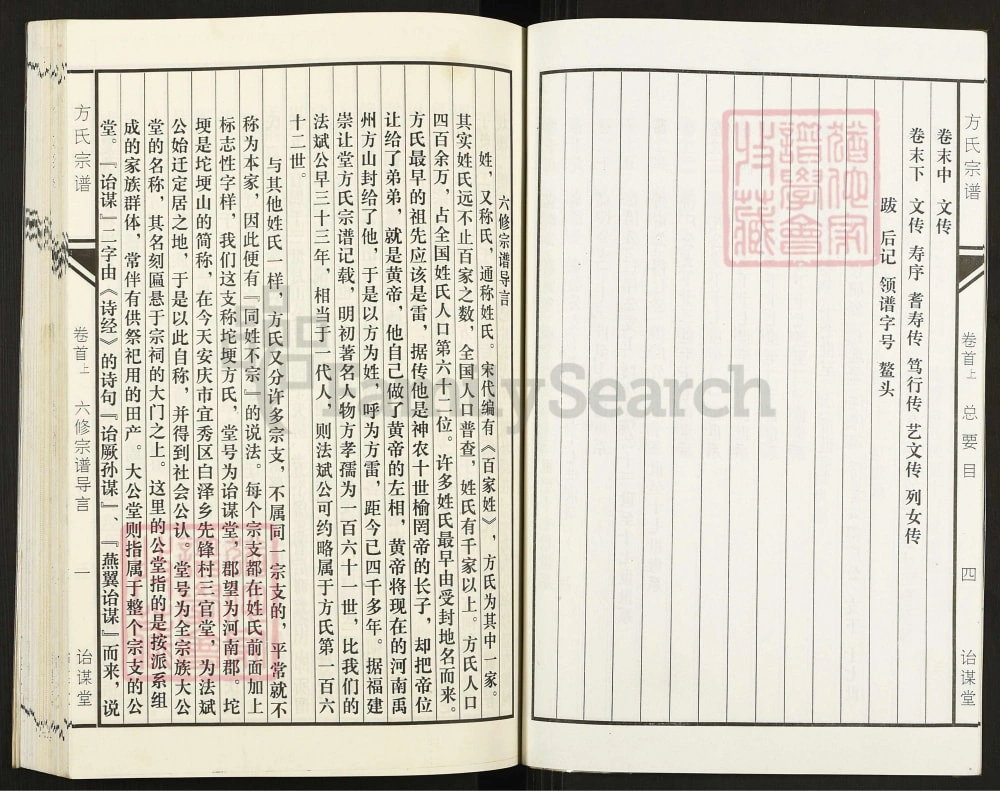 方氏宗谱
卷首上
总要目
四
诒谋堂
卷末中 文传
卷末下 文传 寿序 耆寿传 笃行传 艺文传 列女传
跋 后记 领谱字号 鳌头
六修宗谱导言
姓，又称氏，通称姓氏。宋代编有《百家姓》，方氏为其中一家。
其实姓氏远不止百家之数，全国人口普查，姓氏有千家以上。方氏人口
四百余万，占全国姓氏人口第六十二位。许多姓氏最早由受封地名而来。
方氏最早的祖先应该是雷，据传他是神农十世榆罔帝的长子，却把帝位
让给了弟弟，就是黄帝，他自己做了黄帝的左相，黄帝将现在的河南禹
州方山封给了他，于是以方为姓，呼为方雷，距今已四千多年。据福建
崇让堂方氏宗谱记载，明初著名人物方孝孺为一百六十一世，比我们的
法斌公早三十三年，相当于一代人，则法斌公可约略属于方氏第一百六
十二世。
与其他姓氏一样，方氏又分许多宗支，不属同一宗支的，平常就不
称为本家，因此便有『同姓不宗』的说法。每个宗支都在姓氏前面加上
标志性字样，我们这支称坨埂方氏，堂号为诒谋堂，郡望为河南郡。坨
埂是坨埂山的简称，在今天安庆市宜秀区白泽乡先锋村三官堂，为法斌
公始迁定居之地，于是以此自称，并得到社会公认。堂号为全宗族大公
堂的名称，其名刻匾悬于宗祠的大门之上。这里的公堂指的是按派系组
成的家族群体，常伴有供祭祀用的田产。大公堂则指属于整个宗支的公
堂。『诒谋』二字由《诗经》的诗句『诒厥孙谋』、『燕翼诒谋』而来，说
方氏宗谱
卷首上
六修宗谱导言
一
诒谋堂
FamilySearch